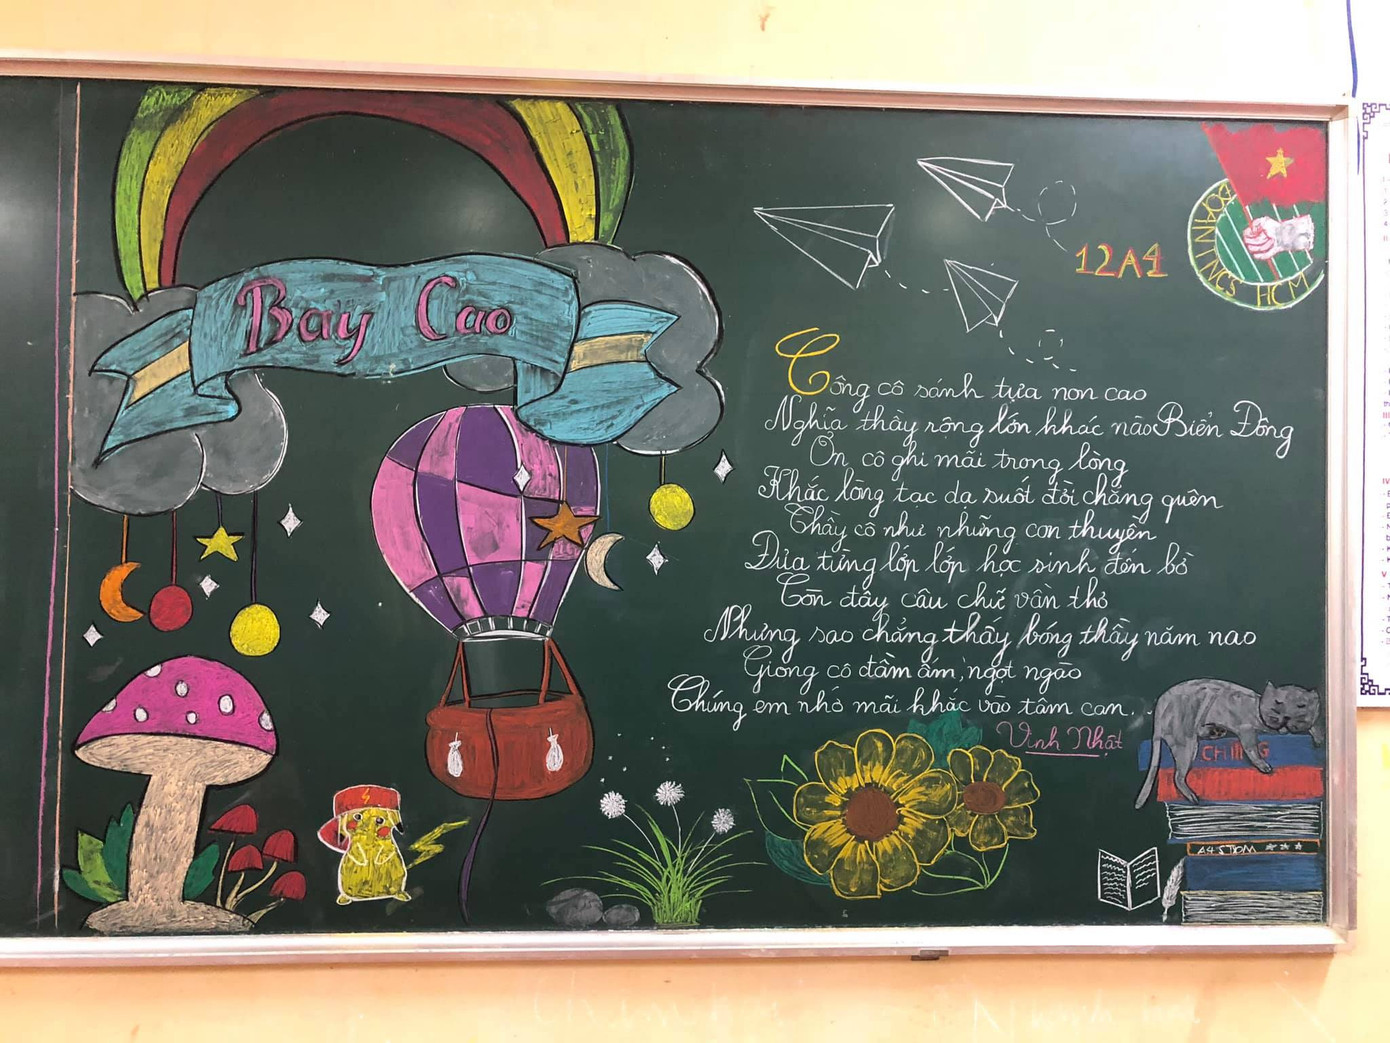 Bay Cao
12A1
ĐOÀN TNCS HCM
Công cô sánh tựa non cao
Nghĩa thầy rộng lớn khác nào Biển Đông
Ơn cô ghi mãi trong lòng
Khắc lòng tạc dạ suốt đời chẳng quên
Thầy cô như những con thuyền
Đưa từng lớp lớp học sinh đến bờ
Còn đây câu chữ vần thơ
Nhưng sao chẳng thấy bóng thầy năm nao
Giọng cô đầm ấm, ngọt ngào
Chúng em nhớ mãi khắc vào tâm can...
Vinh Nhật